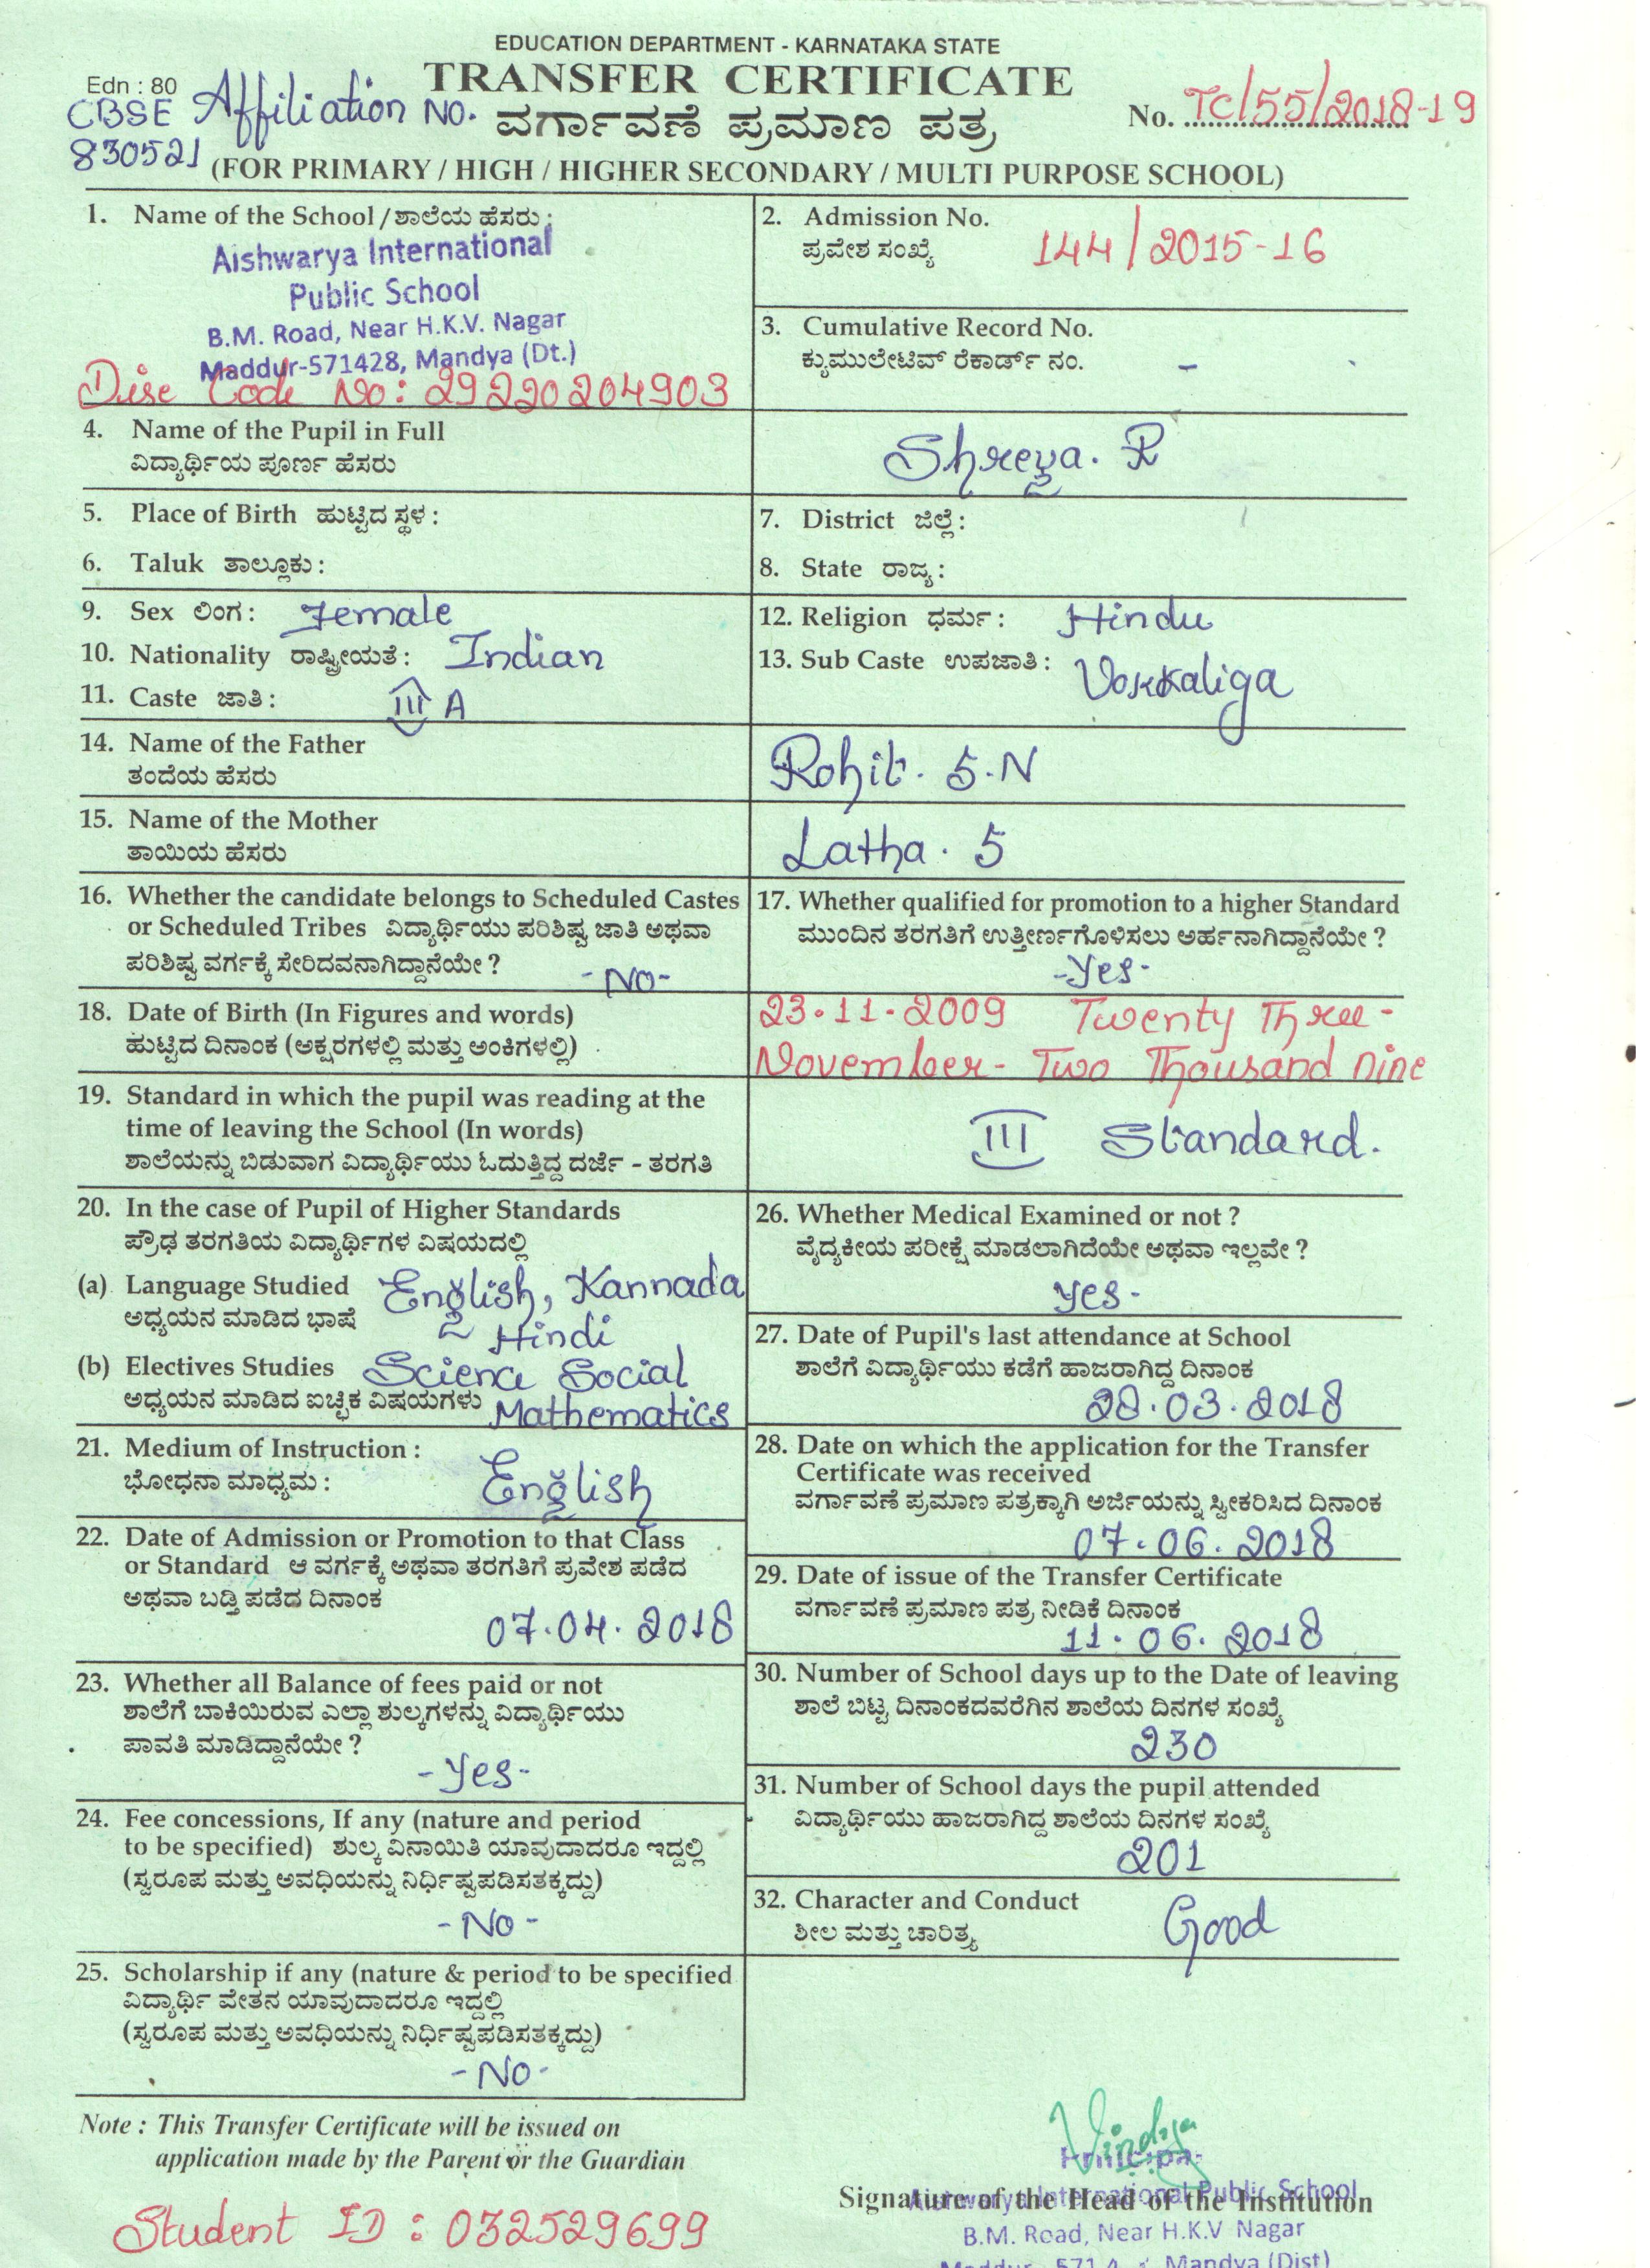 EDUCATION DEPARTMENT - KARNATAKA STATE
Edn : 80
TRANSFER CERTIFICATE
CBSE Affiliation NO.
830521
ವರ್ಗಾವಣೆ ಪ್ರಮಾಣ ಪತ್ರ
No. TC/55/2018-19
(FOR PRIMARY / HIGH / HIGHER SECONDARY / MULTI PURPOSE SCHOOL)
1. Name of the School / ಶಾಲೆಯ ಹೆಸರು :
Aishwarya International
Public School
B.M. Road, Near H.K.V. Nagar
Maddur-571428, Mandya (Dt.)
Dise Code No: 29220204903
2. Admission No.
ಪ್ರವೇಶ ಸಂಖ್ಯೆ 144/2015-16
3. Cumulative Record No.
ಕ್ಯುಮುಲೇಟಿವ್ ರೆಕಾರ್ಡ್ ನಂ. -
4. Name of the Pupil in Full
ವಿದ್ಯಾರ್ಥಿಯ ಪೂರ್ಣ ಹೆಸರು
Shreya. R
5. Place of Birth ಹುಟ್ಟಿದ ಸ್ಥಳ :
6. Taluk ತಾಲ್ಲೂಕು :
7. District ಜಿಲ್ಲೆ :
8. State ರಾಜ್ಯ :
9. Sex ಲಿಂಗ : Female
10. Nationality ರಾಷ್ಟ್ರೀಯತೆ : Indian
11. Caste ಜಾತಿ : III A
12. Religion ಧರ್ಮ : Hindu
13. Sub Caste ಉಪಜಾತಿ : Vokkaliga
14. Name of the Father
ತಂದೆಯ ಹೆಸರು
Rohit. S.N
15. Name of the Mother
ತಾಯಿಯ ಹೆಸರು
Latha. S
16. Whether the candidate belongs to Scheduled Castes
or Scheduled Tribes ವಿದ್ಯಾರ್ಥಿಯು ಪರಿಶಿಷ್ಟ ಜಾತಿ ಅಥವಾ
ಪರಿಶಿಷ್ಟ ವರ್ಗಕ್ಕೆ ಸೇರಿದವನಾಗಿದ್ದಾನೆಯೇ ? -NO-
17. Whether qualified for promotion to a higher Standard
ಮುಂದಿನ ತರಗತಿಗೆ ಉತ್ತೀರ್ಣಗೊಳಿಸಲು ಅರ್ಹನಾಗಿದ್ದಾನೆಯೇ ?
-Yes-
18. Date of Birth (In Figures and words)
ಹುಟ್ಟಿದ ದಿನಾಂಕ (ಅಕ್ಷರಗಳಲ್ಲಿ ಮತ್ತು ಅಂಕಿಗಳಲ್ಲಿ)
23.11.2009 Twenty Three-
November- Two Thousand nine
19. Standard in which the pupil was reading at the
time of leaving the School (In words)
ಶಾಲೆಯನ್ನು ಬಿಡುವಾಗ ವಿದ್ಯಾರ್ಥಿಯು ಓದುತ್ತಿದ್ದ ದರ್ಜೆ - ತರಗತಿ
III Standard.
20. In the case of Pupil of Higher Standards
ಪ್ರೌಢ ತರಗತಿಯ ವಿದ್ಯಾರ್ಥಿಗಳ ವಿಷಯದಲ್ಲಿ
(a) Language Studied English, Kannada
ಅಧ್ಯಯನ ಮಾಡಿದ ಭಾಷೆ Hindi
(b) Electives Studies Science Social
ಅಧ್ಯಯನ ಮಾಡಿದ ಐಚ್ಛಿಕ ವಿಷಯಗಳು Mathematics
21. Medium of Instruction :
ಭೋಧನಾ ಮಾಧ್ಯಮ : English
22. Date of Admission or Promotion to that Class
or Standard ಆ ವರ್ಗಕ್ಕೆ ಅಥವಾ ತರಗತಿಗೆ ಪ್ರವೇಶ ಪಡೆದ
ಅಥವಾ ಬಡ್ತಿ ಪಡೆದ ದಿನಾಂಕ
07.04.2018
23. Whether all Balance of fees paid or not
ಶಾಲೆಗೆ ಬಾಕಿಯಿರುವ ಎಲ್ಲಾ ಶುಲ್ಕಗಳನ್ನು ವಿದ್ಯಾರ್ಥಿಯು
ಪಾವತಿ ಮಾಡಿದ್ದಾನೆಯೇ ?
-Yes-
24. Fee concessions, If any (nature and period
to be specified) ಶುಲ್ಕ ವಿನಾಯಿತಿ ಯಾವುದಾದರೂ ಇದ್ದಲ್ಲಿ
(ಸ್ವರೂಪ ಮತ್ತು ಅವಧಿಯನ್ನು ನಿರ್ಧಿಷ್ಟಪಡಿಸತಕ್ಕದ್ದು)
-No-
25. Scholarship if any (nature & period to be specified
ವಿದ್ಯಾರ್ಥಿ ವೇತನ ಯಾವುದಾದರೂ ಇದ್ದಲ್ಲಿ
(ಸ್ವರೂಪ ಮತ್ತು ಅವಧಿಯನ್ನು ನಿರ್ಧಿಷ್ಟಪಡಿಸತಕ್ಕದ್ದು)
-No-
26. Whether Medical Examined or not ?
ವೈದ್ಯಕೀಯ ಪರೀಕ್ಷೆ ಮಾಡಲಾಗಿದೆಯೇ ಅಥವಾ ಇಲ್ಲವೇ ?
yes-
27. Date of Pupil's last attendance at School
ಶಾಲೆಗೆ ವಿದ್ಯಾರ್ಥಿಯು ಕಡೆಗೆ ಹಾಜರಾಗಿದ್ದ ದಿನಾಂಕ
28.03.2018
28. Date on which the application for the Transfer
Certificate was received
ವರ್ಗಾವಣೆ ಪ್ರಮಾಣ ಪತ್ರಕ್ಕಾಗಿ ಅರ್ಜಿಯನ್ನು ಸ್ವೀಕರಿಸಿದ ದಿನಾಂಕ
07.06.2018
29. Date of issue of the Transfer Certificate
ವರ್ಗಾವಣೆ ಪ್ರಮಾಣ ಪತ್ರ ನೀಡಿಕೆ ದಿನಾಂಕ
11.06.2018
30. Number of School days up to the Date of leaving
ಶಾಲೆ ಬಿಟ್ಟ ದಿನಾಂಕದವರೆಗಿನ ಶಾಲೆಯ ದಿನಗಳ ಸಂಖ್ಯೆ
230
31. Number of School days the pupil attended
ವಿದ್ಯಾರ್ಥಿಯು ಹಾಜರಾಗಿದ್ದ ಶಾಲೆಯ ದಿನಗಳ ಸಂಖ್ಯೆ
201
32. Character and Conduct
ಶೀಲ ಮತ್ತು ಚಾರಿತ್ರ್ಯ Good
Note : This Transfer Certificate will be issued on
application made by the Parent or the Guardian
Student ID : 032529699
Signature of the Head of the Institution
Aishwarya International Public School
B.M. Road, Near H.K.V Nagar
Maddur Mandya (Dist)